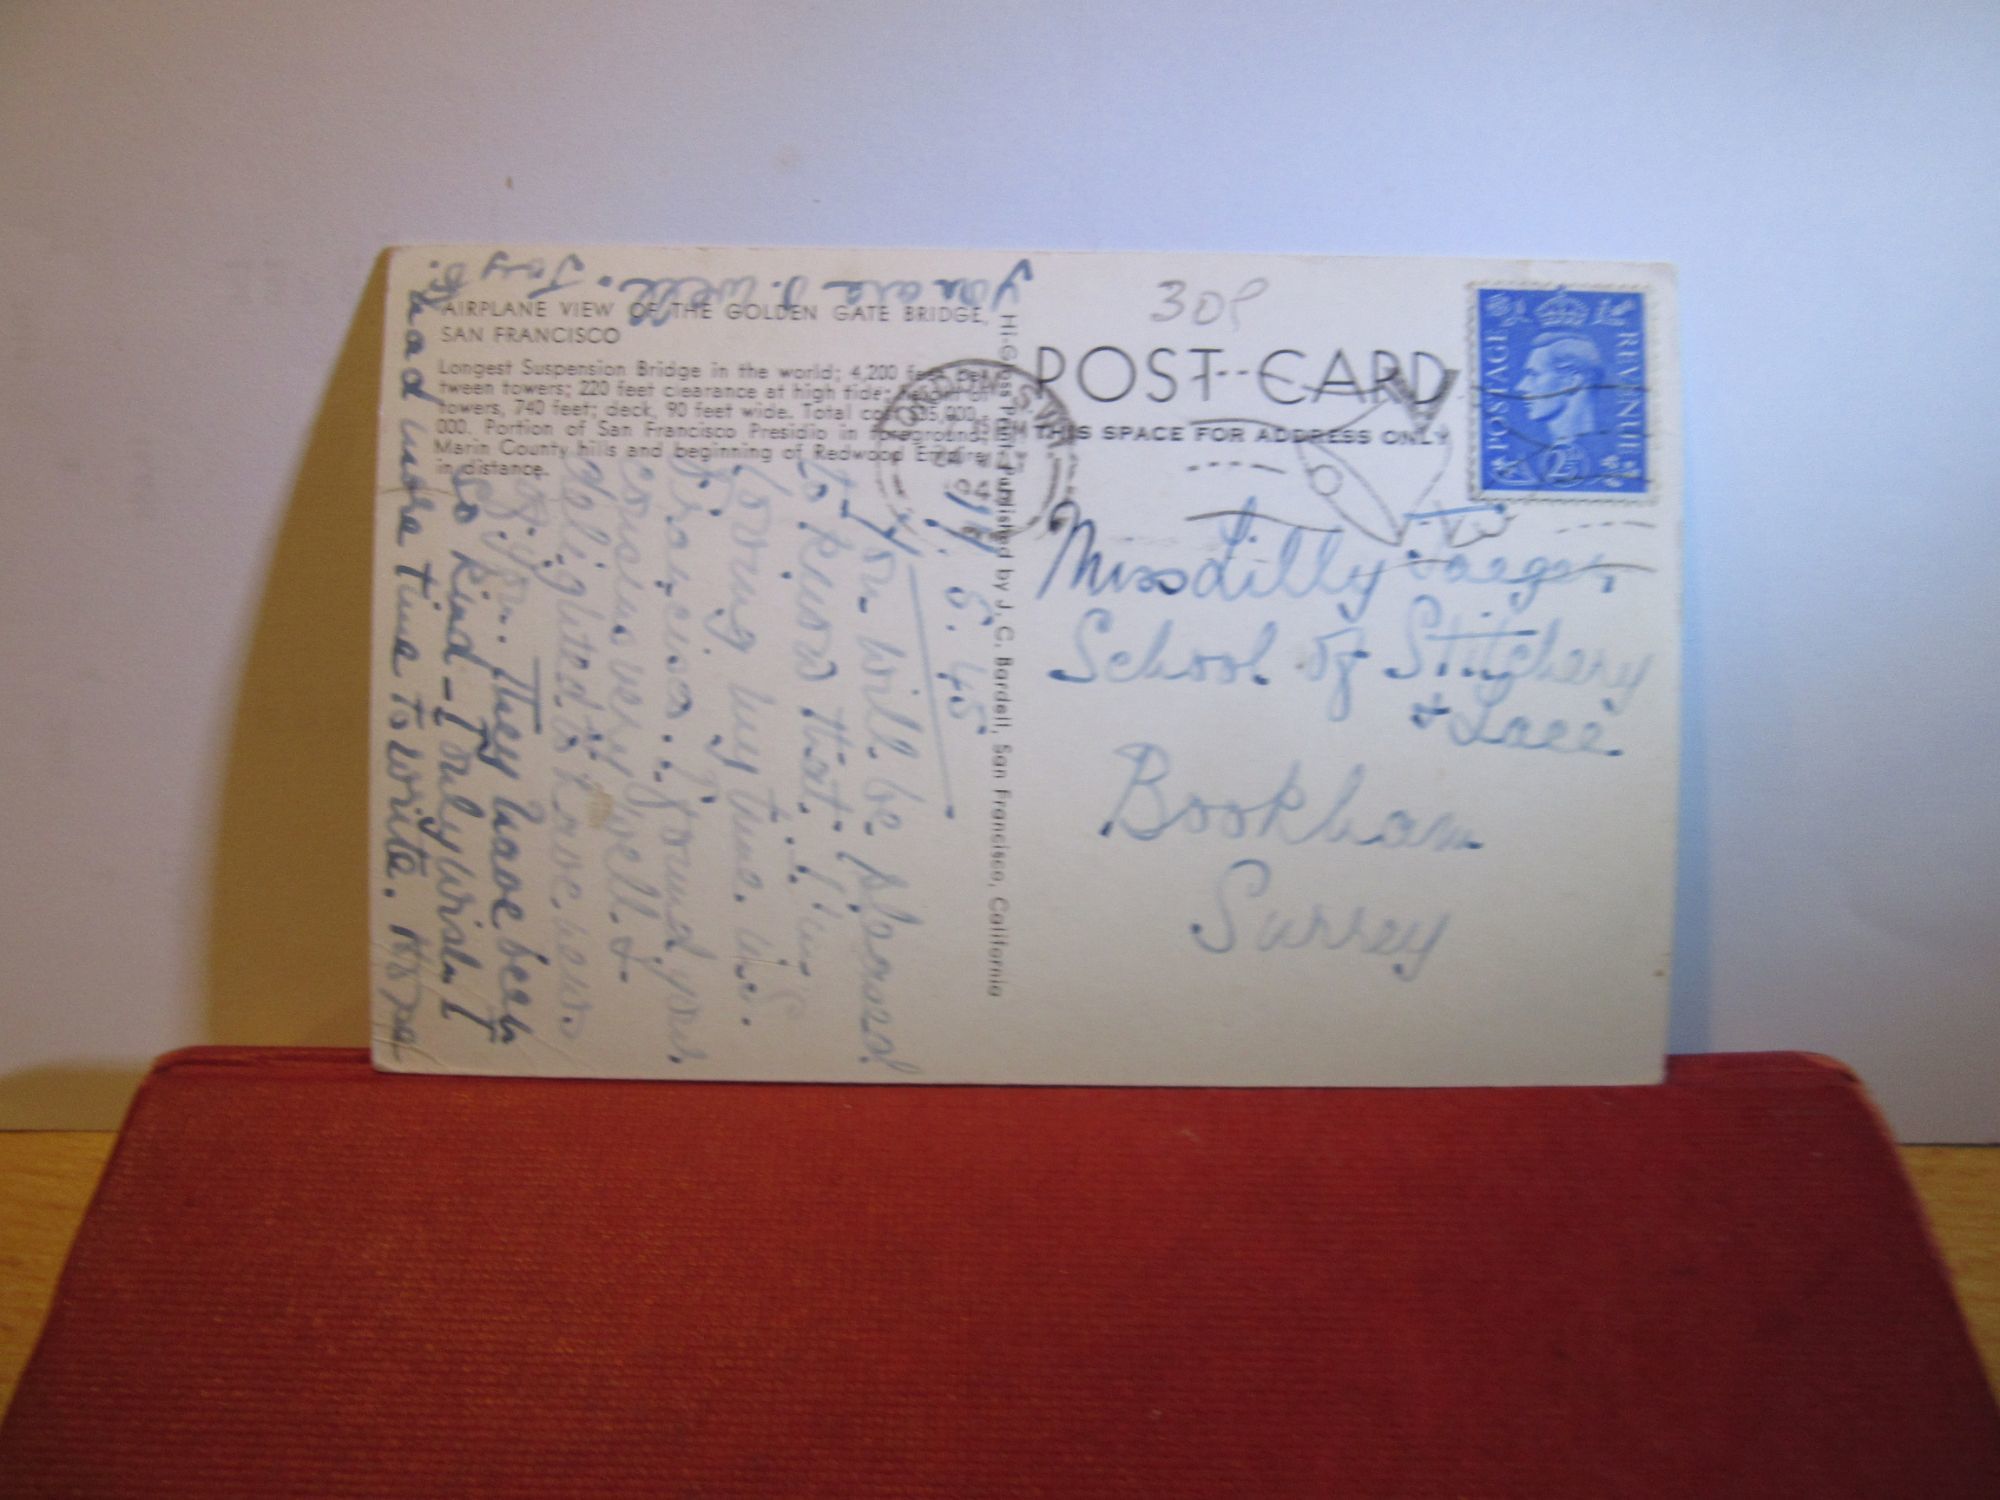 AIRPLANE VIEW OF THE GOLDEN GATE BRIDGE,
SAN FRANCISCO
Longest Suspension Bridge in the world; 4,200 feet be-
tween towers; 220 feet clearance at high tide; height of
towers, 740 feet; deck, 90 feet wide. Total cost $35,000,-
000. Portion of San Francisco Presidio in foreground;
Marin County hills and beginning of Redwood Empire
in distance.
8. 45.
You will be pleased
to know that I'm
loving my time in S.
Francisco. I found your
cousins very well &
delighted to have news
of you. They have been
so kind - I only wish I
had more time to write. Hope
you are v. well. Joy
Hi-Gloss Published by J. C. Bardell, San Francisco, California
30p
POST CARD
THIS SPACE FOR ADDRESS ONLY
POSTAGE REVENUE
2½
Miss Lilly
School of Stitchery
& Lace
Bookham
Surrey